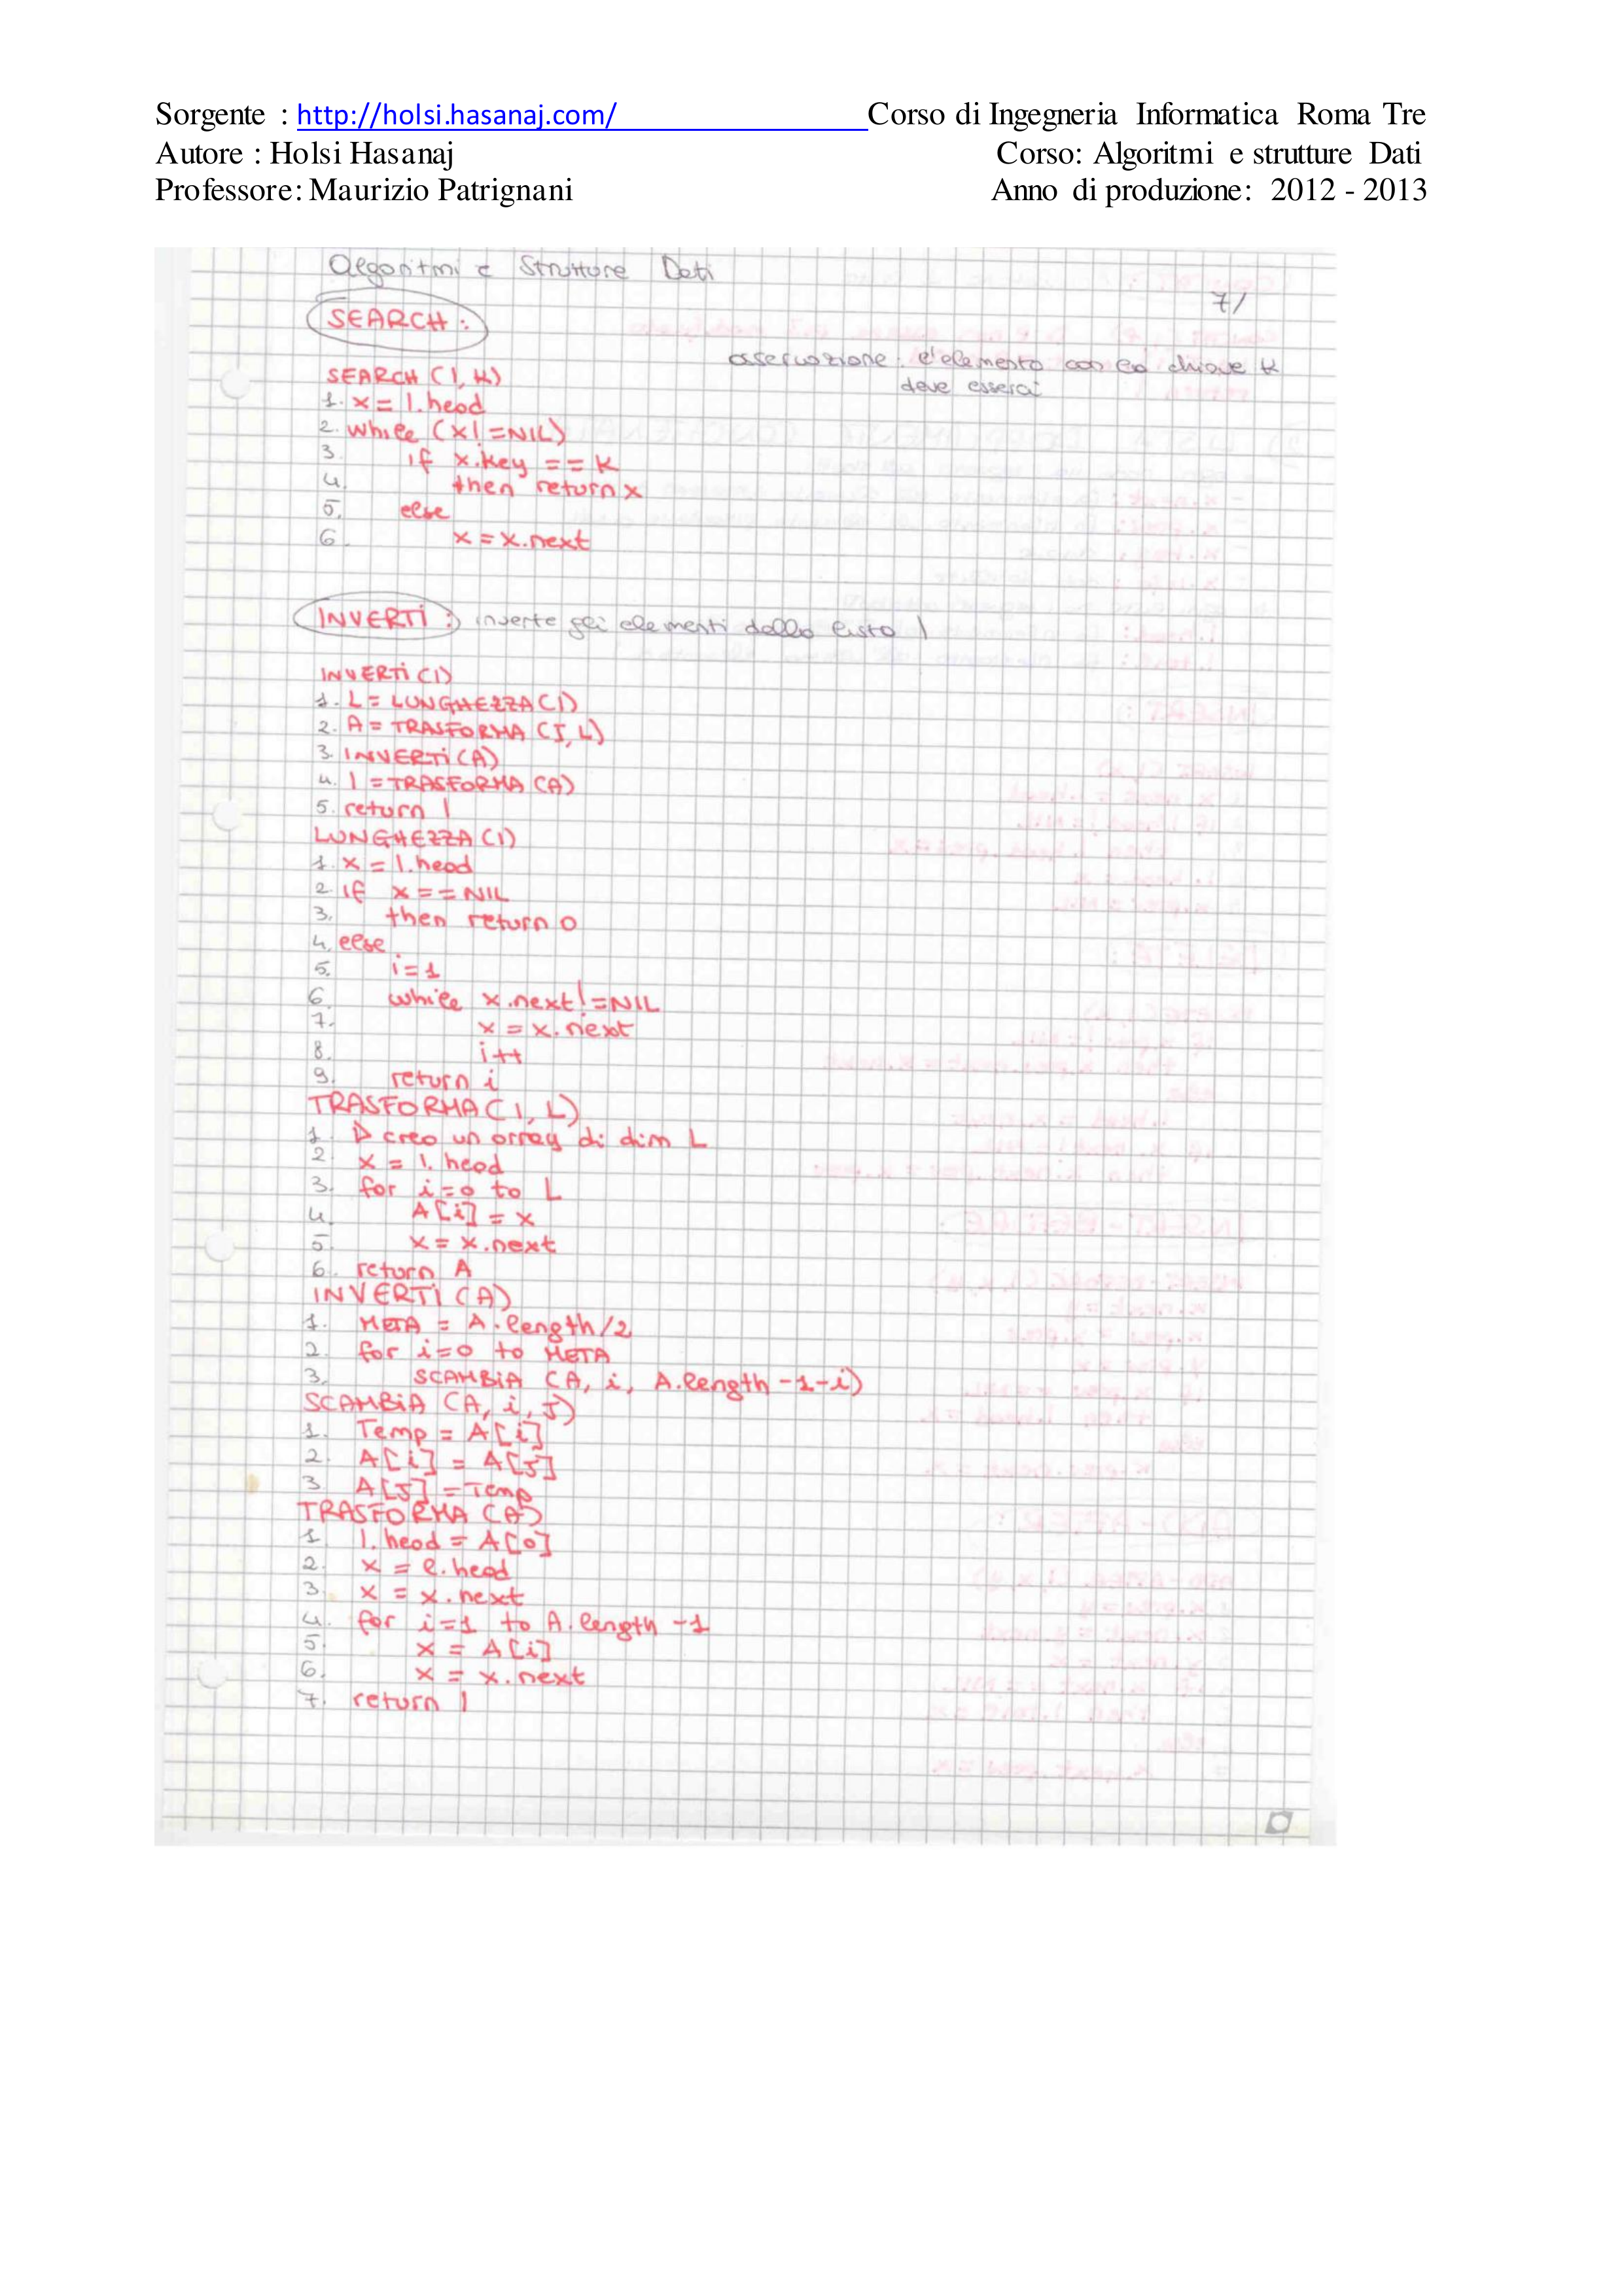 Sorgente : http://holsi.hasanaj.com/ Corso di Ingegneria Informatica Roma Tre
Autore : Holsi Hasanaj Corso: Algoritmi e strutture Dati
Professore: Maurizio Patrignani Anno di produzione: 2012 - 2013
Algoritmi e Strutture Dati
7/
SEARCH :
osservazione: l'elemento con la chiave k
deve esserci
SEARCH (l, k)
1. x = l.head
2. while (x != NIL)
3. if x.key == k
4. then return x
5. else
6. x = x.next
INVERTI : inverte gli elementi della lista l
INVERTI (l)
1. L = LUNGHEZZA (l)
2. A = TRASFORMA (I, L)
3. INVERTI (A)
4. l = TRASFORMA (A)
5. return l
LUNGHEZZA (l)
1. x = l.head
2. if x == NIL
3. then return 0
4. else
5. i = 1
6. while x.next != NIL
7. x = x.next
8. i++
9. return i
TRASFORMA (l, L)
1. ▷ creo un array di dim L
2. x = l.head
3. for i=0 to L
4. A[i] = x
5. x = x.next
6. return A
INVERTI (A)
1. META = A.length/2
2. for i=0 to META
3. SCAMBIA (A, i, A.length -1-i)
SCAMBIA (A, i, J)
1. Temp = A[i]
2. A[i] = A[J]
3. A[J] = Temp
TRASFORMA (A)
1. l.head = A[0]
2. x = l.head
3. x = x.next
4. for i=1 to A.length -1
5. x = A[i]
6. x = x.next
7. return l